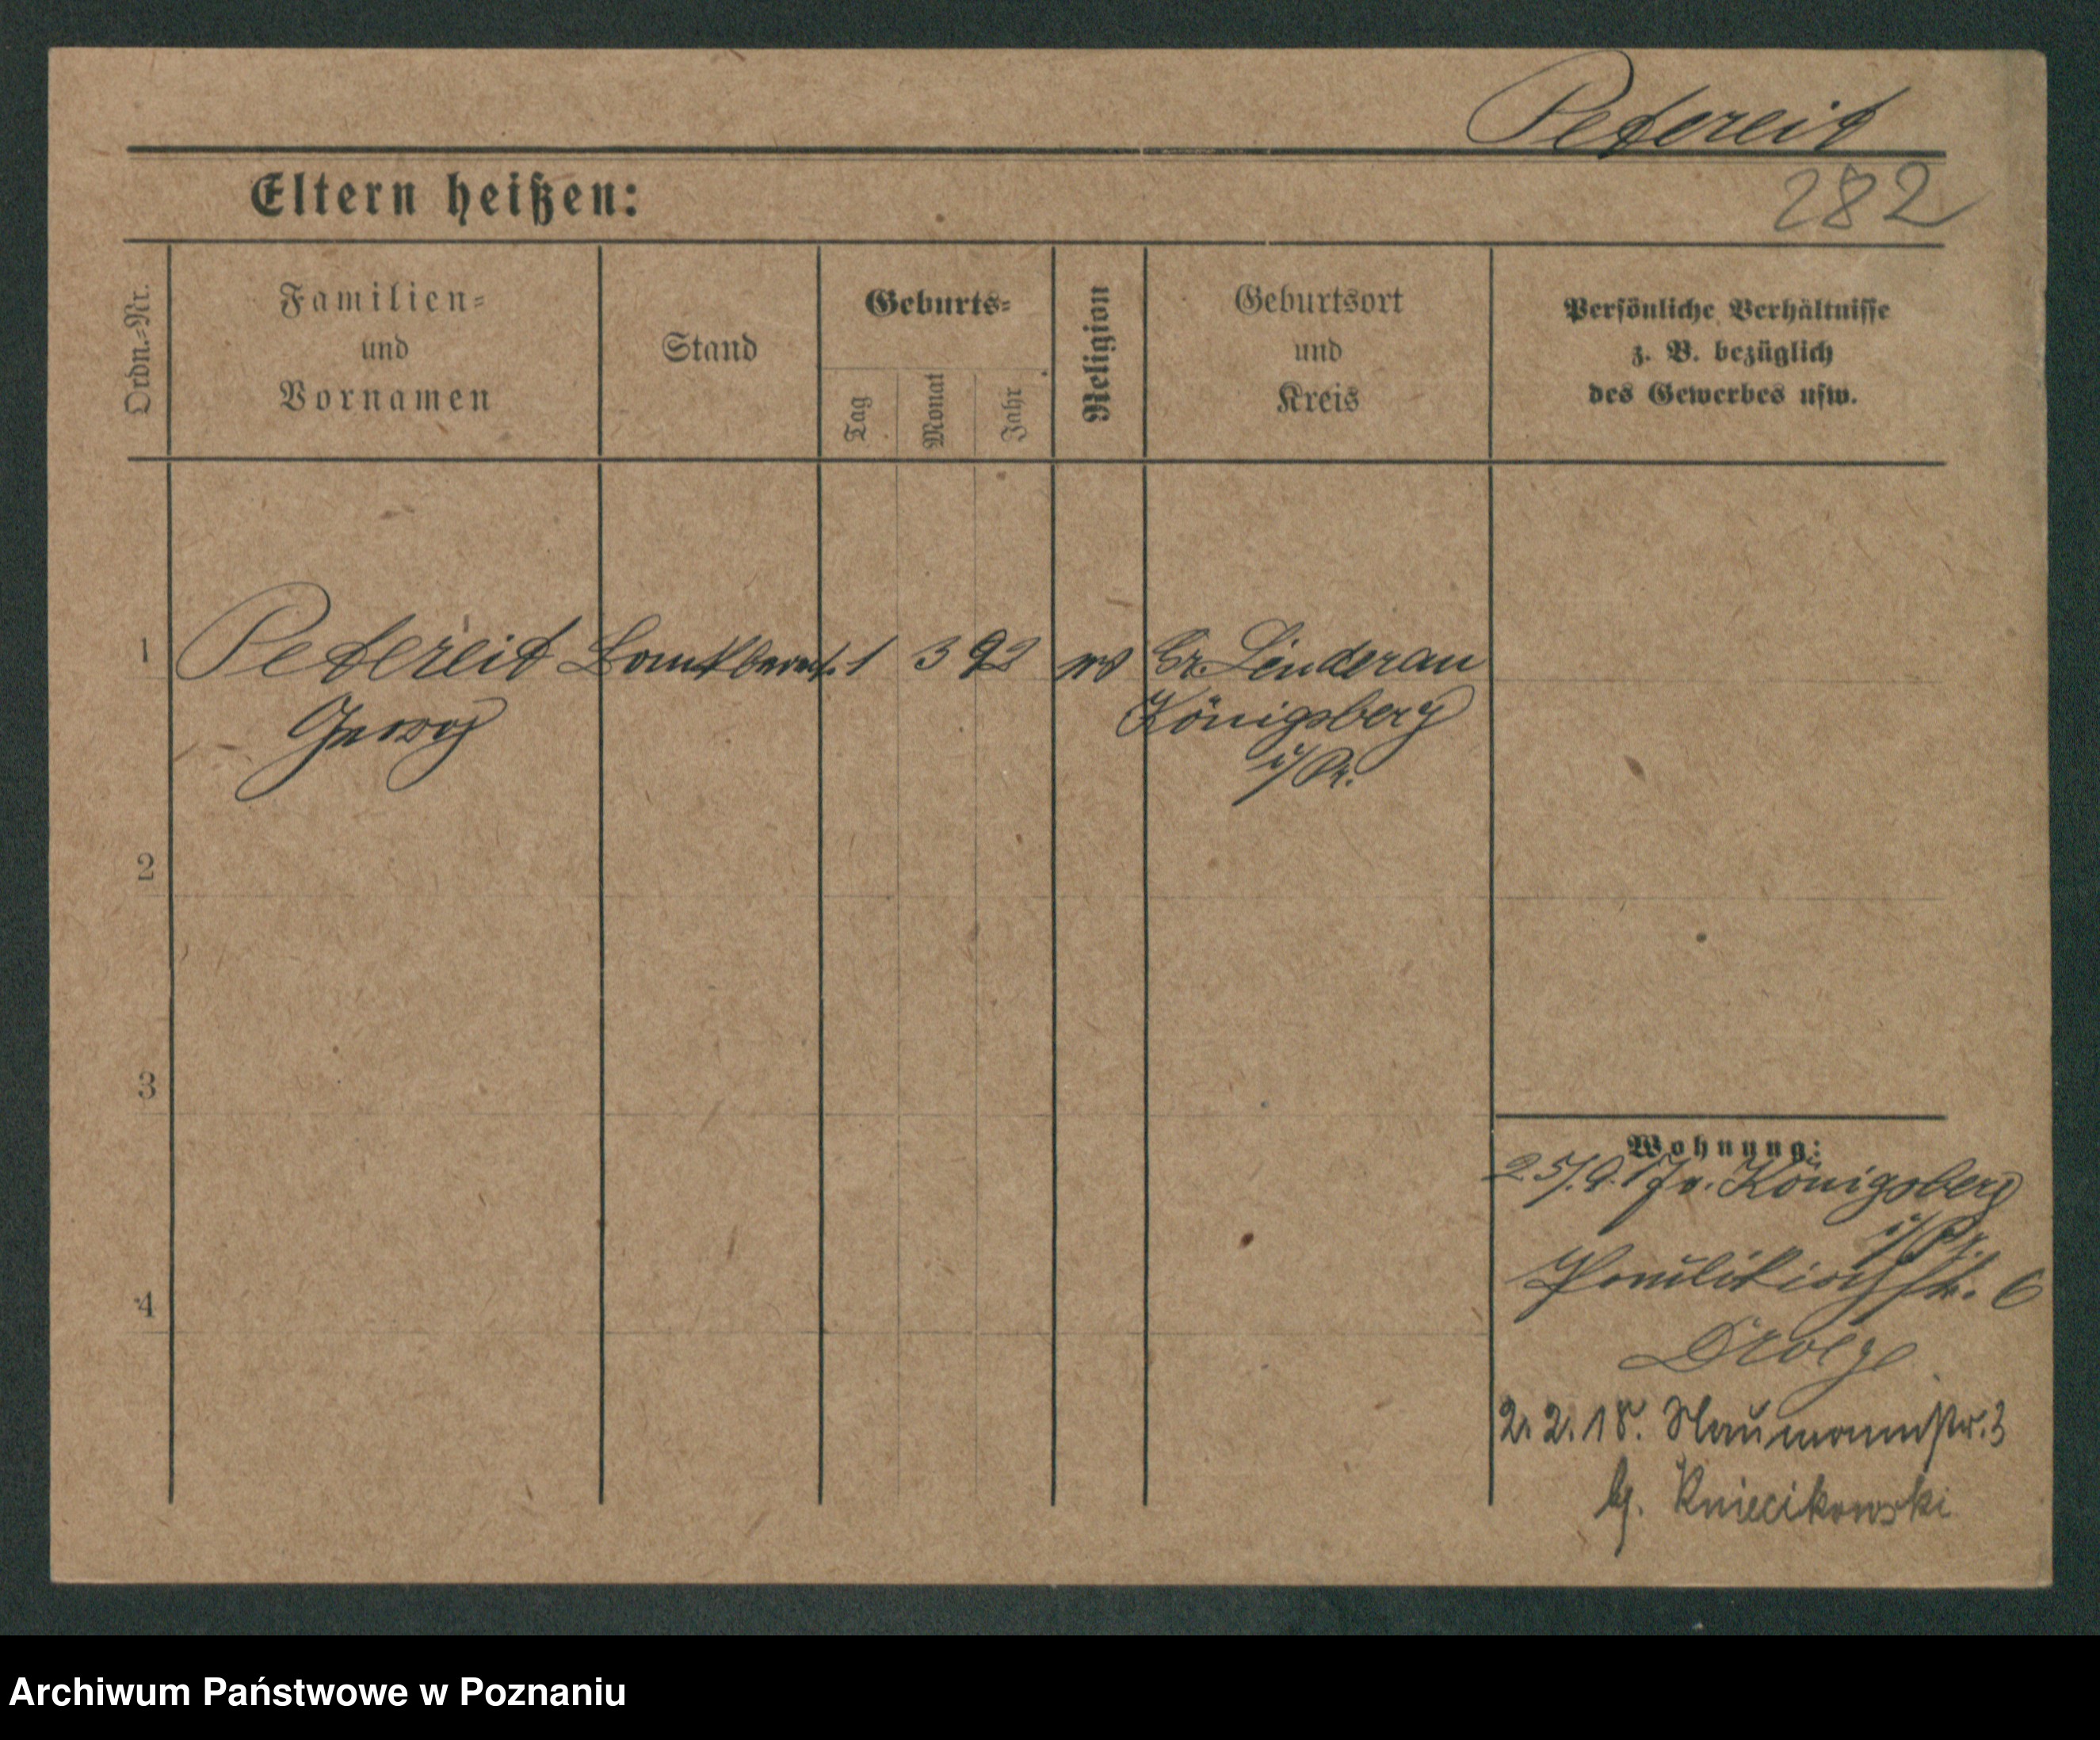 Petereit
282
Eltern heißen:
Ordn.-Nr.
Familien-
und
Vornamen
Stand
Geburts-
Tag
Monat
Jahr
Religion
Geburtsort
und
Kreis
Persönliche Verhältnisse
z. B. bezüglich
des Gewerbes usw.
1 Petereit Bankbeamt. 1 3 92 Gr. Lindenau
Georg Königsberg
i/Pr.
2
3
4
Wohnung:
25/9.17 v. Königsberg
i/Pr.
str. 6
2. 2. 18. Naumannstr. 3
b/. Kniecikowski
Archiwum Państwowe w Poznaniu